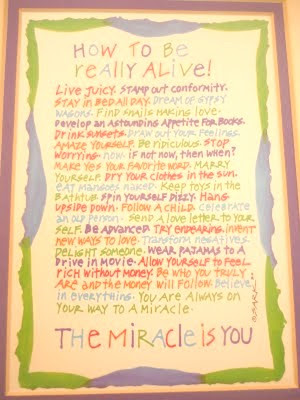 How To Be
Really Alive!
Live juicy. Stamp out conformity.
Stay in bed all day. Dream of gypsy
wagons. Find snails making love.
Develop an astounding appetite for books.
Drink sunsets. Draw out your feelings.
Amaze yourself. Be ridiculous. Stop
worrying. now. If not now, then when?
Make yes your favorite word. Marry
yourself. Dry your clothes in the sun.
Eat mangoes naked. Keep toys in the
bathtub. Spin yourself dizzy. Hang
upside down. Follow a child. Celebrate
an old person. Send a love letter to your
self. Be advanced. Try endearing. Invent
new ways to love. Transform negatives.
Delight someone. Wear pajamas to a
drive in movie. Allow yourself to feel
rich without money. Be who you truly
are and the money will follow. Believe
in everything. You are always on
your way to a miracle.
The Miracle is You
SARK